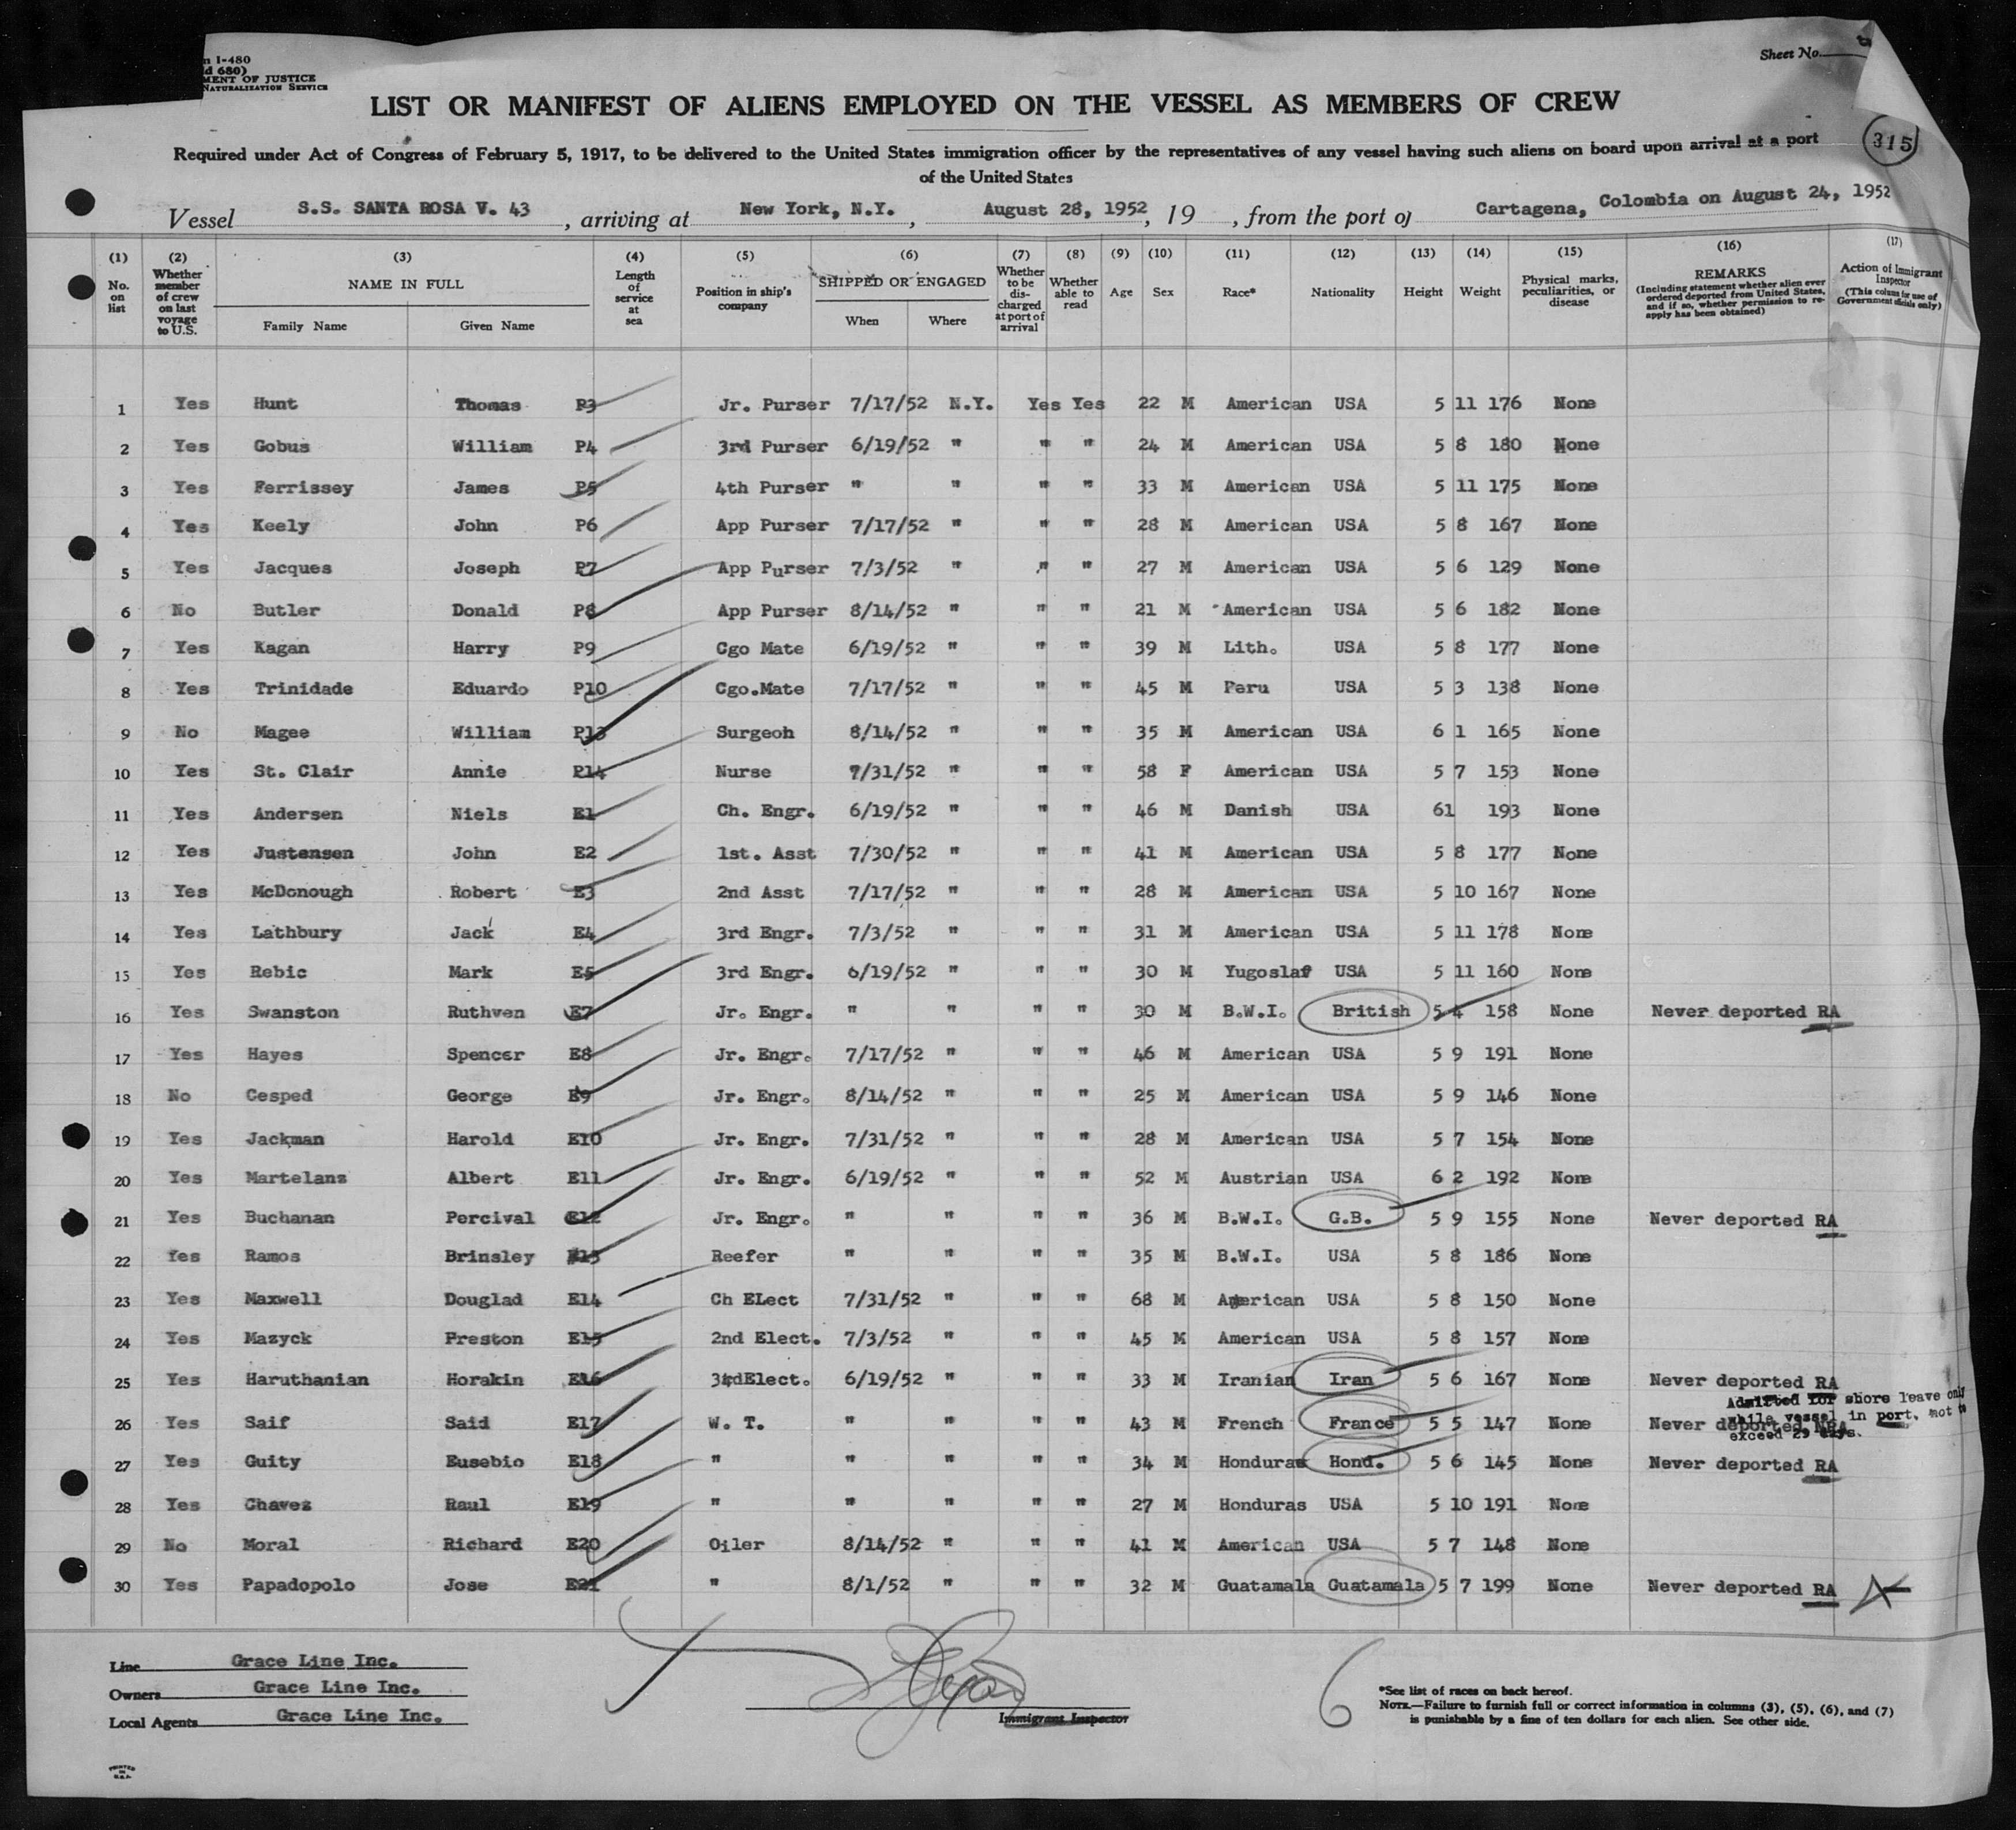 n I-480
ld 680)
MENT OF JUSTICE
NATURALIZATION SERVICE
Sheet No.
LIST OR MANIFEST OF ALIENS EMPLOYED ON THE VESSEL AS MEMBERS OF CREW
315
Required under Act of Congress of February 5, 1917, to be delivered to the United States immigration officer by the representatives of any vessel having such aliens on board upon arrival at a port
of the United States
Vessel S.S. SANTA ROSA V. 43, arriving at New York, N.Y., August 28, 1952, 19 , from the port of Cartagena, Colombia on August 24, 1952
(1) No. on list
(2) Whether member of crew on last voyage to U.S.
(3) NAME IN FULL Family Name Given Name
(4) Length of service at sea
(5) Position in ship's company
(6) SHIPPED OR ENGAGED When Where
(7) Whether to be discharged at port of arrival
(8) Whether able to read
(9) Age
(10) Sex
(11) Race*
(12) Nationality
(13) Height
(14) Weight
(15) Physical marks, peculiarities, or disease
(16) REMARKS (Including statement whether alien ever ordered deported from United States, and if so, whether permission to re-apply has been obtained)
(17) Action of Immigrant Inspector (This column for use of Government officials only)
1 Yes Hunt Thomas P3 Jr. Purser 7/17/52 N.Y. Yes Yes 22 M American USA 5 11 176 None
2 Yes Gobus William P4 3rd Purser 6/19/52 " " " 24 M American USA 5 8 180 None
3 Yes Ferrissey James P5 4th Purser " " " " 33 M American USA 5 11 175 None
4 Yes Keely John P6 App Purser 7/17/52 " " " 28 M American USA 5 8 167 None
5 Yes Jacques Joseph P7 App Purser 7/3/52 " " " 27 M American USA 5 6 129 None
6 No Butler Donald P8 App Purser 8/14/52 " " " 21 M American USA 5 6 182 None
7 Yes Kagan Harry P9 Cgo Mate 6/19/52 " " " 39 M Lith. USA 5 8 177 None
8 Yes Trinidade Eduardo P10 Cgo.Mate 7/17/52 " " " 45 M Peru USA 5 3 138 None
9 No Magee William P13 Surgeoh 8/14/52 " " " 35 M American USA 6 1 165 None
10 Yes St. Clair Annie P14 Nurse 7/31/52 " " " 58 F American USA 5 7 153 None
11 Yes Andersen Niels E1 Ch. Engr. 6/19/52 " " " 46 M Danish USA 61 193 None
12 Yes Justensen John E2 1st. Asst 7/30/52 " " " 41 M American USA 5 8 177 None
13 Yes McDonough Robert E3 2nd Asst 7/17/52 " " " 28 M American USA 5 10 167 None
14 Yes Lathbury Jack E4 3rd Engr. 7/3/52 " " " 31 M American USA 5 11 178 None
15 Yes Rebic Mark E5 3rd Engr. 6/19/52 " " " 30 M Yugoslaf USA 5 11 160 None
16 Yes Swanston Ruthven E7 Jr. Engr. " " " " 30 M B.W.I. British 5 4 158 None Never deported RA
17 Yes Hayes Spencer E8 Jr. Engr. 7/17/52 " " " 46 M American USA 5 9 191 None
18 No Cesped George E9 Jr. Engr. 8/14/52 " " " 25 M American USA 5 9 146 None
19 Yes Jackman Harold E10 Jr. Engr. 7/31/52 " " " 28 M American USA 5 7 154 None
20 Yes Martelans Albert E11 Jr. Engr. 6/19/52 " " " 52 M Austrian USA 6 2 192 None
21 Yes Buchanan Percival E12 Jr. Engr. " " " " 36 M B.W.I. G.B. 5 9 155 None Never deported RA
22 Yes Ramos Brinsley E13 Reefer " " " " 35 M B.W.I. USA 5 8 186 None
23 Yes Maxwell Douglad E14 Ch ELect 7/31/52 " " " 68 M American USA 5 8 150 None
24 Yes Mazyck Preston E15 2nd Elect. 7/3/52 " " " 45 M American USA 5 8 157 None
25 Yes Haruthanian Horakin E16 3rdElect. 6/19/52 " " " 33 M Iranian Iran 5 6 167 None Never deported RA
Admitted for shore leave only
while vessel in port, not to
exceed 29 days.
26 Yes Saif Said E17 W. T. " " " " 43 M French France 5 5 147 None Never deported NRA
27 Yes Guity Eusebio E18 " " " " " 34 M Honduras Hond. 5 6 145 None Never deported RA
28 Yes Chavez Raul E19 " " " " " 27 M Honduras USA 5 10 191 None
29 No Moral Richard E20 Oiler 8/14/52 " " " 41 M American USA 5 7 148 None
30 Yes Papadopolo Jose E21 " 8/1/52 " " " 32 M Guatamala Guatamala 5 7 199 None Never deported RA
Line Grace Line Inc.
Owners Grace Line Inc.
Local Agents Grace Line Inc.
Immigrant Inspector
6
*See list of races on back hereof.
NOTE.—Failure to furnish full or correct information in columns (3), (5), (6), and (7)
is punishable by a fine of ten dollars for each alien. See other side.
PRINTED
IN
U.S.A.